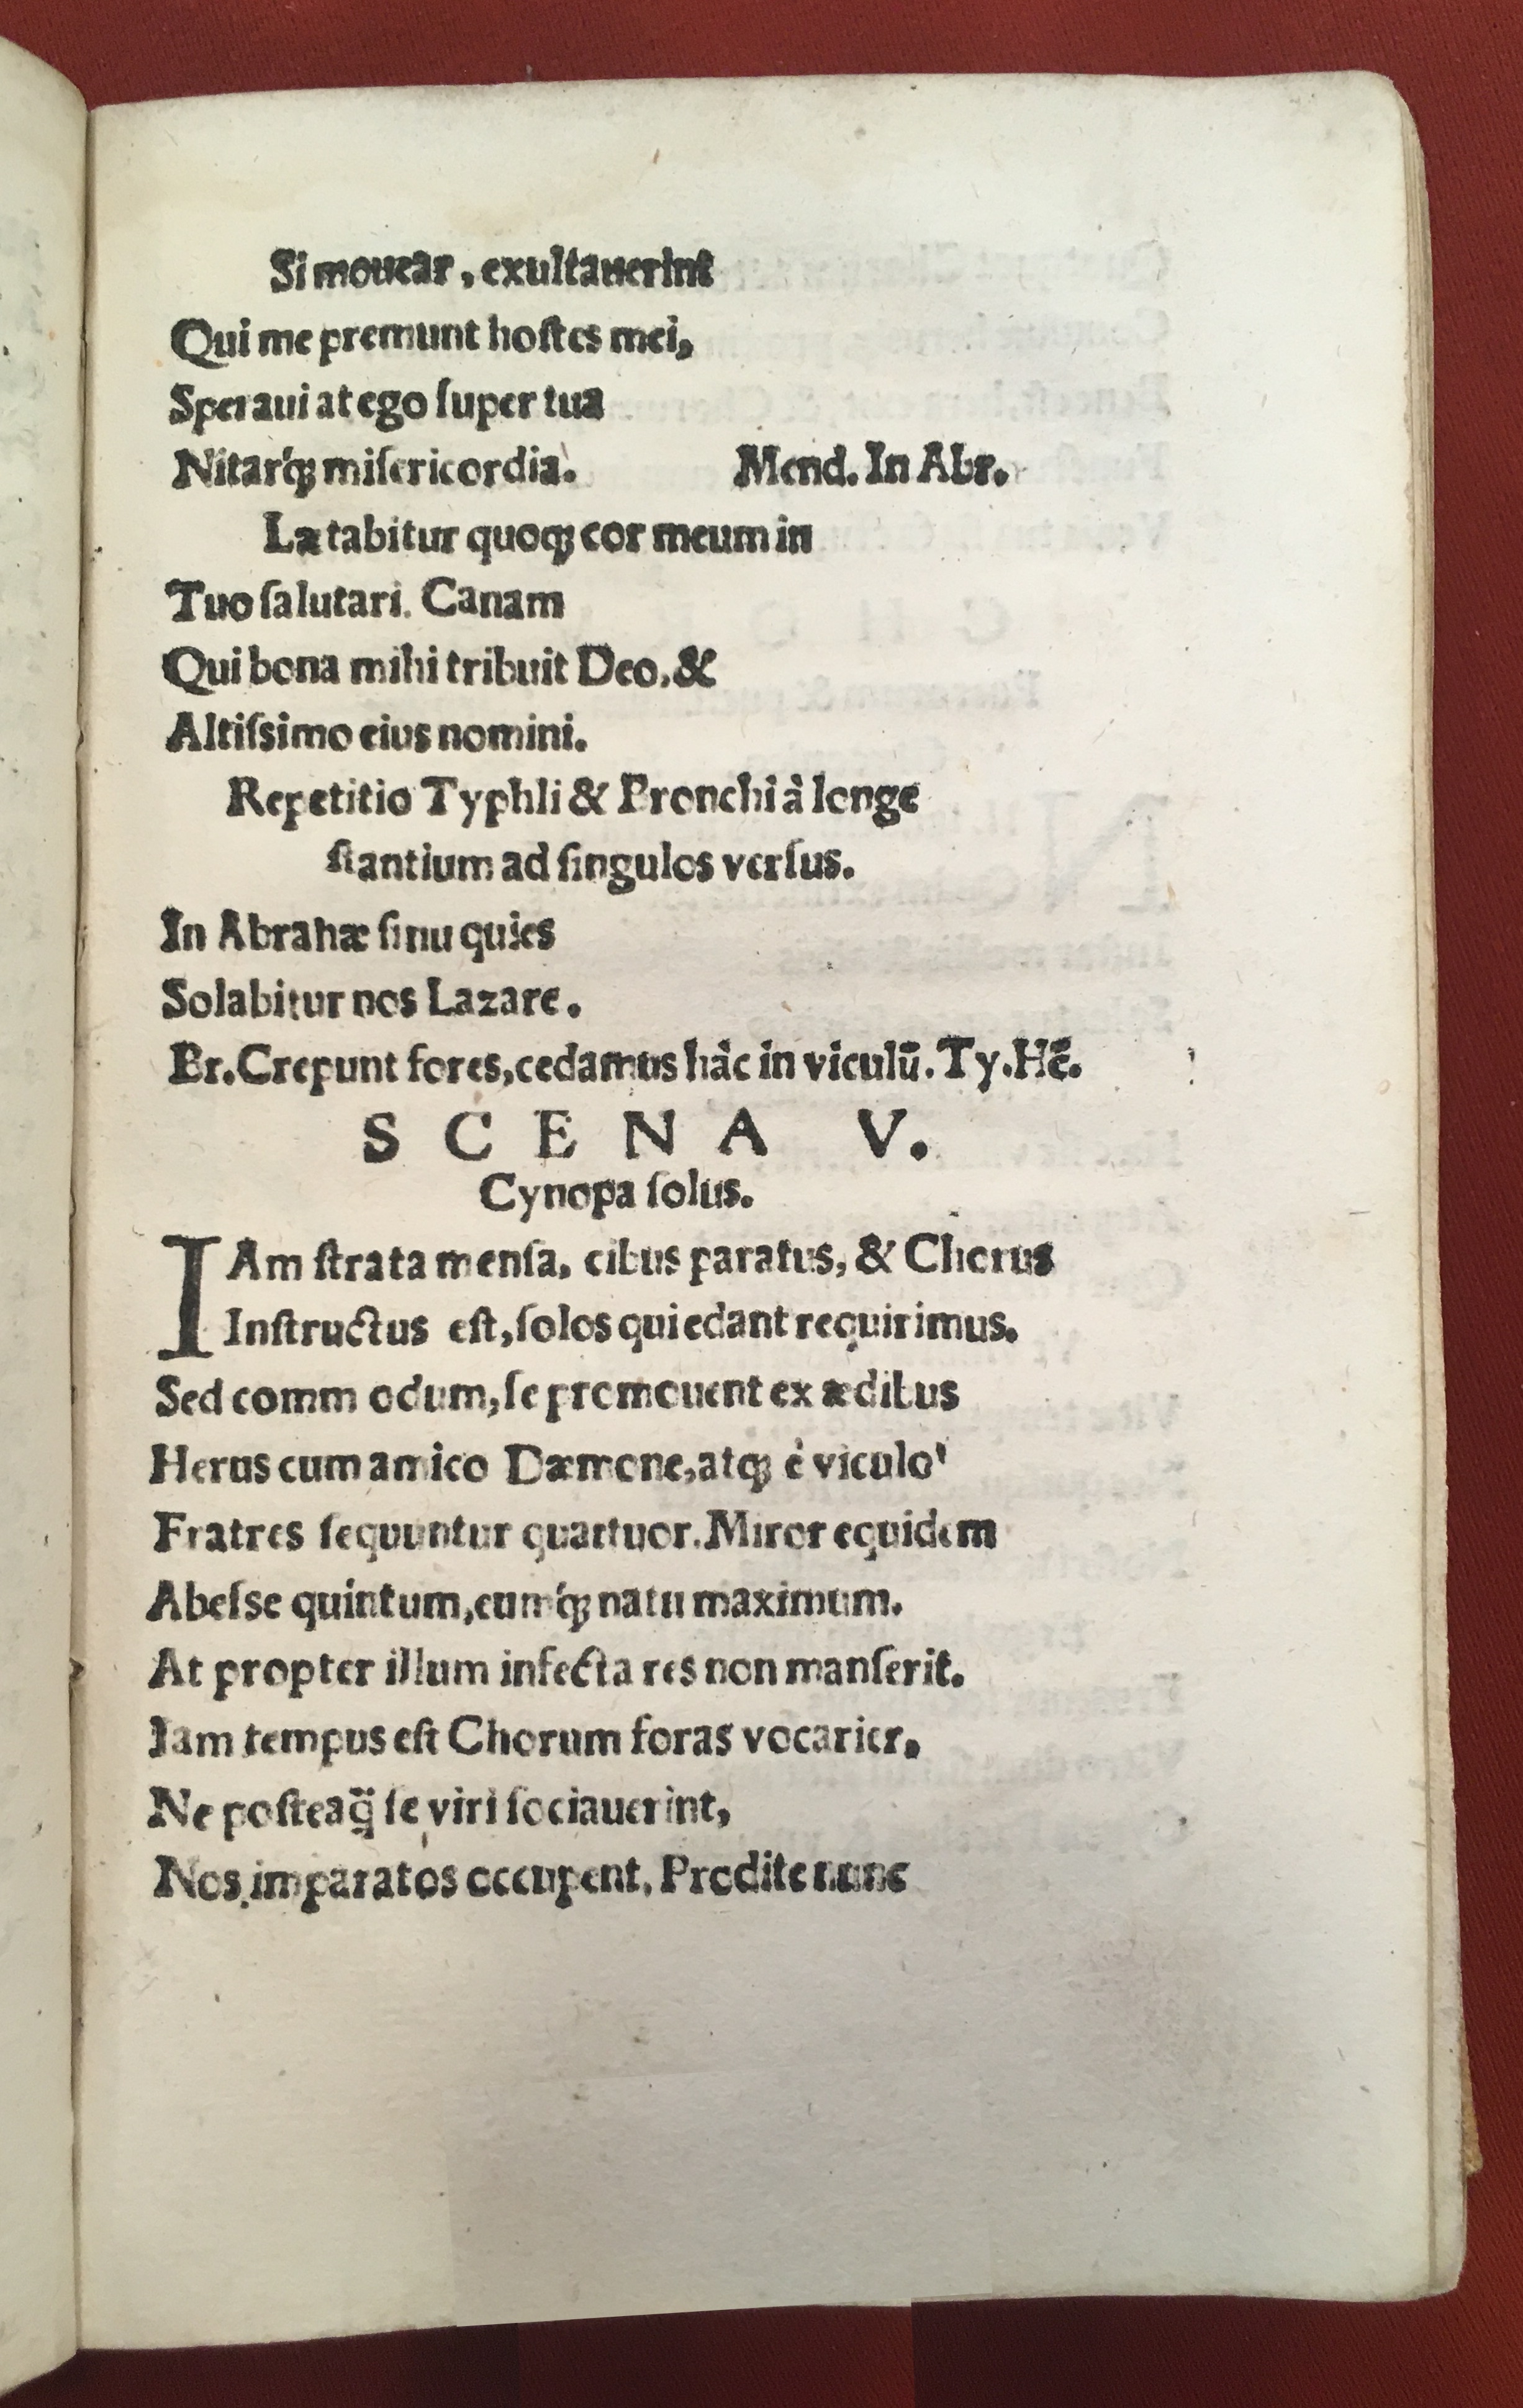 Si mouear, exultauerint
Qui me premunt hoſtes mei,
Speraui at ego ſuper tua
Nitarq́; miſericordia. Mend. In Abr.
Lætabitur quoq; cor meum in
Tuo ſalutari. Canam
Qui bona mihi tribuit Deo, &
Altiſsimo eius nomini.
Repetitio Typhli & Bronchi à longe
ſtantium ad ſingulos verſus.
In Abrahæ ſinu quies
Solabitur nos Lazare.
Br. Crepunt fores, cedamus hàc in viculū. Ty. Hē.
SCENA V.
Cynopa ſolus.
IAm ſtrata menſa, cibus paratus, & Chorus
Inſtructus eſt, ſolos qui edant requirimus.
Sed comm odum, ſe promouent ex ædibus
Herus cum amico Dæmone, atq; è viculo
Fratres ſequuntur quattuor. Miror equidem
Abeſse quintum, eumq́; natu maximum.
At propter illum infecta res non manſerit.
Iam tempus eſt Chorum foras vocarier,
Ne poſteaq̃ ſe viri ſociauerint,
Nos imparatos occupent. Prodite nunc